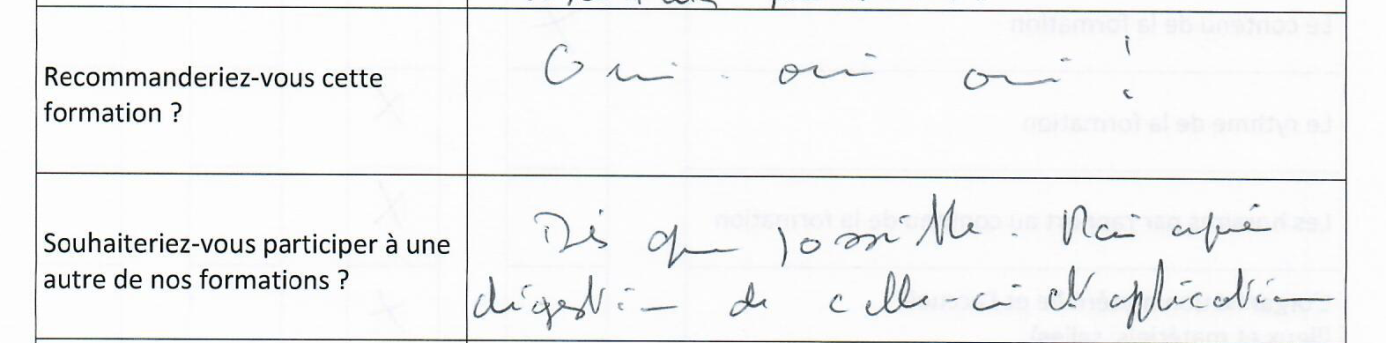 Recommanderiez-vous cette
formation ?
Oui - oui oui !
Souhaiteriez-vous participer à une
autre de nos formations ?
Dès que possible. Mais après
digestion de celle ci et application